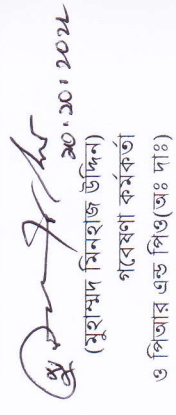 ২০.১০.২০২২
(মুহাম্মদ মিনহাজ উদ্দিন)
গবেষণা কর্মকর্তা
ও পিআর এন্ড পিও(অঃ দাঃ)